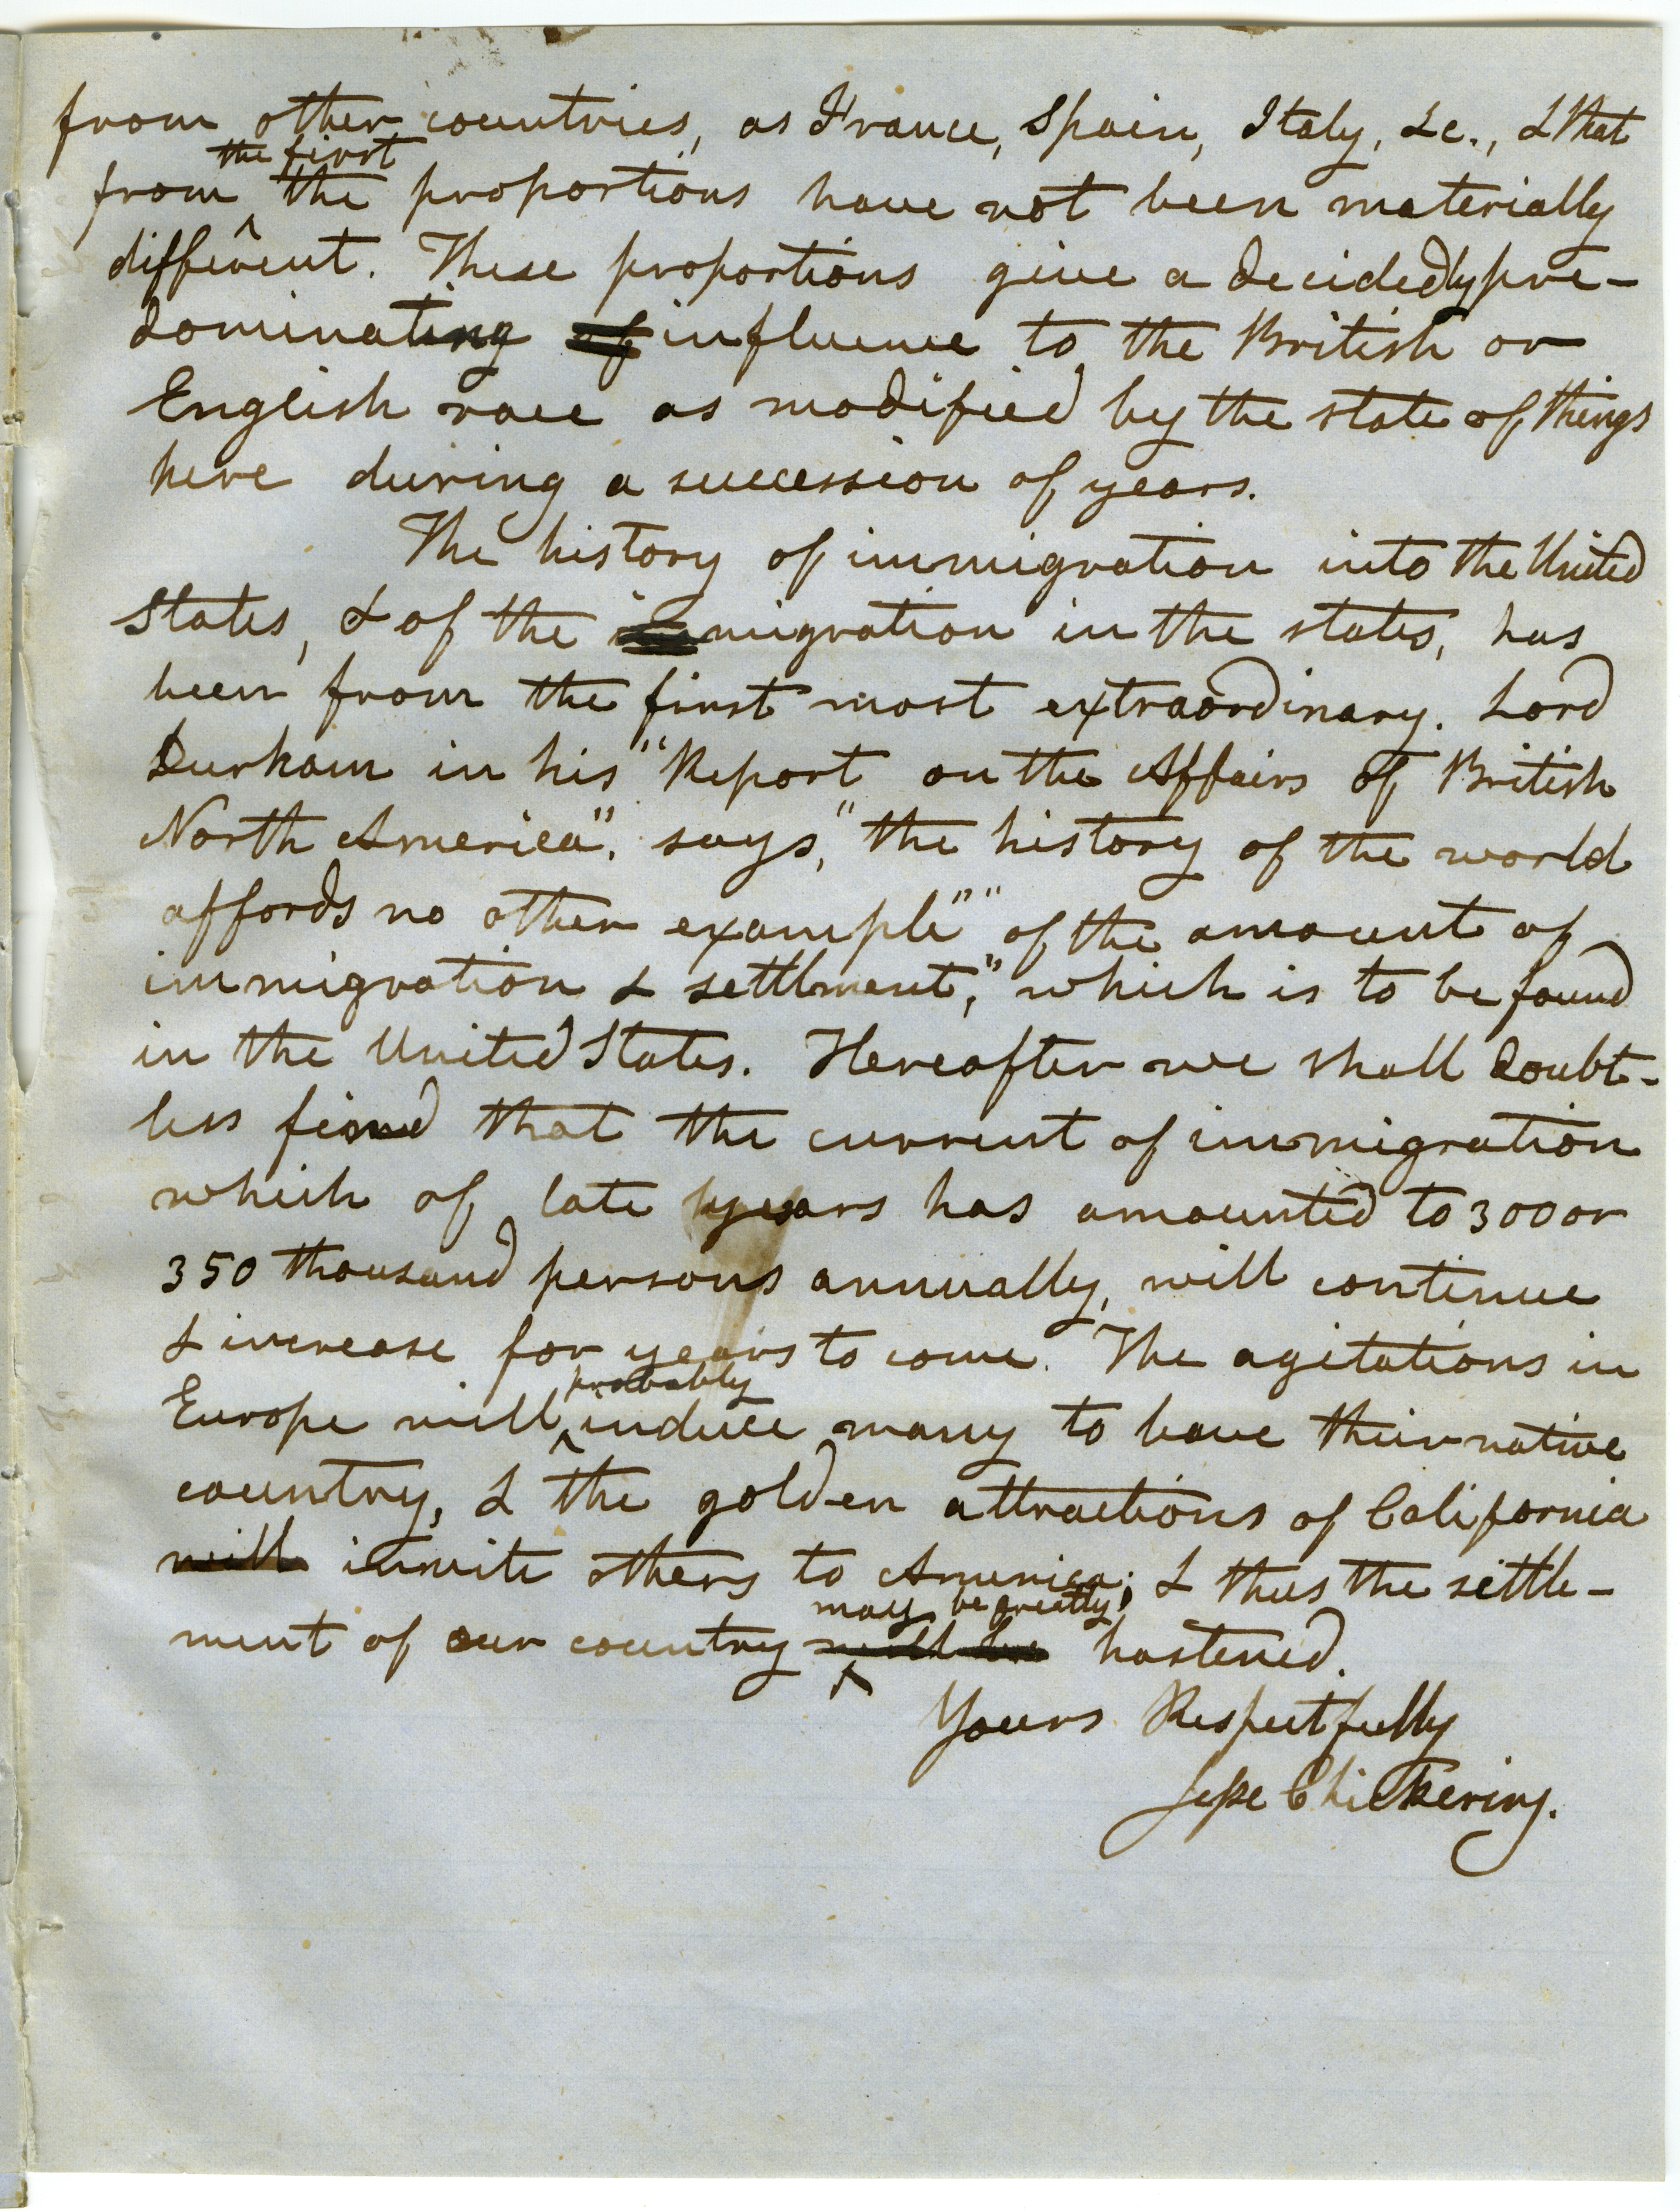 from other countries, as France, Spain, Italy, &c., & that
the first
from the proportions have not been materially
different. These proportions give a decidedly pre-
dominating of influence to the British or
English race as modified by the state of things
here during a succession of years.
The history of immigration into the United
States, & of the migration in the states, has
been from the first most extraordinary. Lord
Durham in his "Report on the Affairs of British
North America", says, "the history of the world
affords no other example" "of the amount of
immigration & settlment," which is to be found
in the United States. Hereafter we shall doubt-
less find that the current of immigration
which of late years has amounted to 300 or
350 thousand persons annually, will continue
& increase for years to come. The agitations in
probably
Europe will induce many to leave their native
country, & the golden attractions of California
will invite others to America; & thus the settle-
may be greatly
ment of our country will be hastened.
Yours Respectfully
Jesse Chickering.